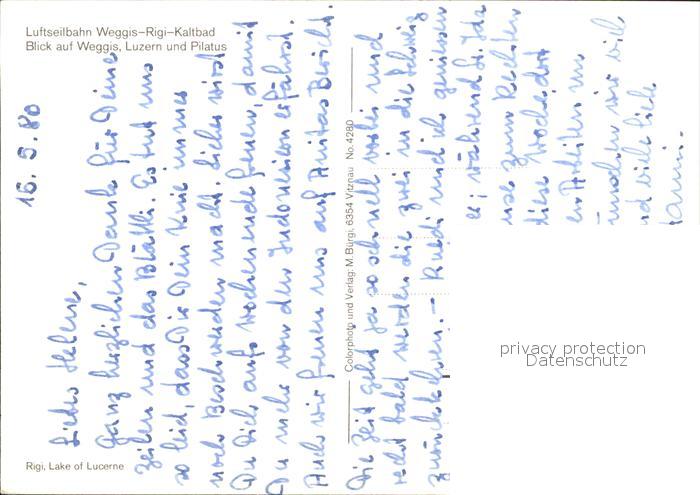 Luftseilbahn Weggis–Rigi–Kaltbad
Blick auf Weggis, Luzern und Pilatus
16. 5. 80
Liebe Helene,
Ganz herzlichen Dank für Deine
Zeilen und das Blättli. Es tut uns
so leid, dass Dir Dein Knie immer
noch Beschwerden macht. Sicher wirst
Du Dich aufs Wochenende freuen, damit
Du mehr von den Indonesien erfährst.
Auch wir freuen uns auf Anitas Bericht.
Die Zeit geht ja so schnell vorbei und
recht bald werden die zwei in die Schweiz
zurückkehren. – Ruedi und ich geniessen
es, während
zum Rechten
diese Woche dort
Arbeiten um
wünschen wir
und viele liebe
Colorphoto und Verlag: M. Bürgi, 6354 Vitznau No. 4280
Rigi, Lake of Lucerne
privacy protection
Datenschutz